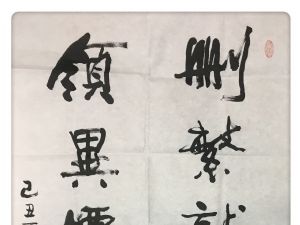 刪繁就
領異標
己丑